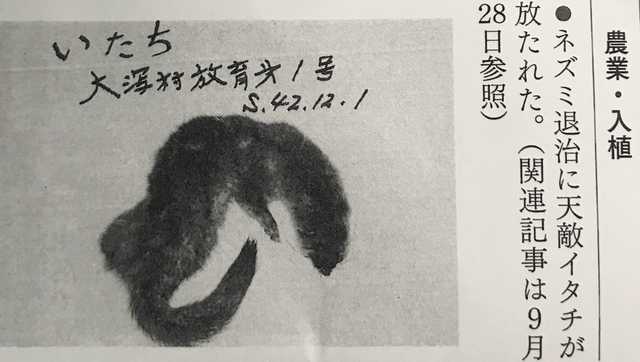 農業・入植
●ネズミ退治に天敵イタチが
放たれた。(関連記事は9月
28日参照)
いたち
大潟村放育才1号
S.42.12.1